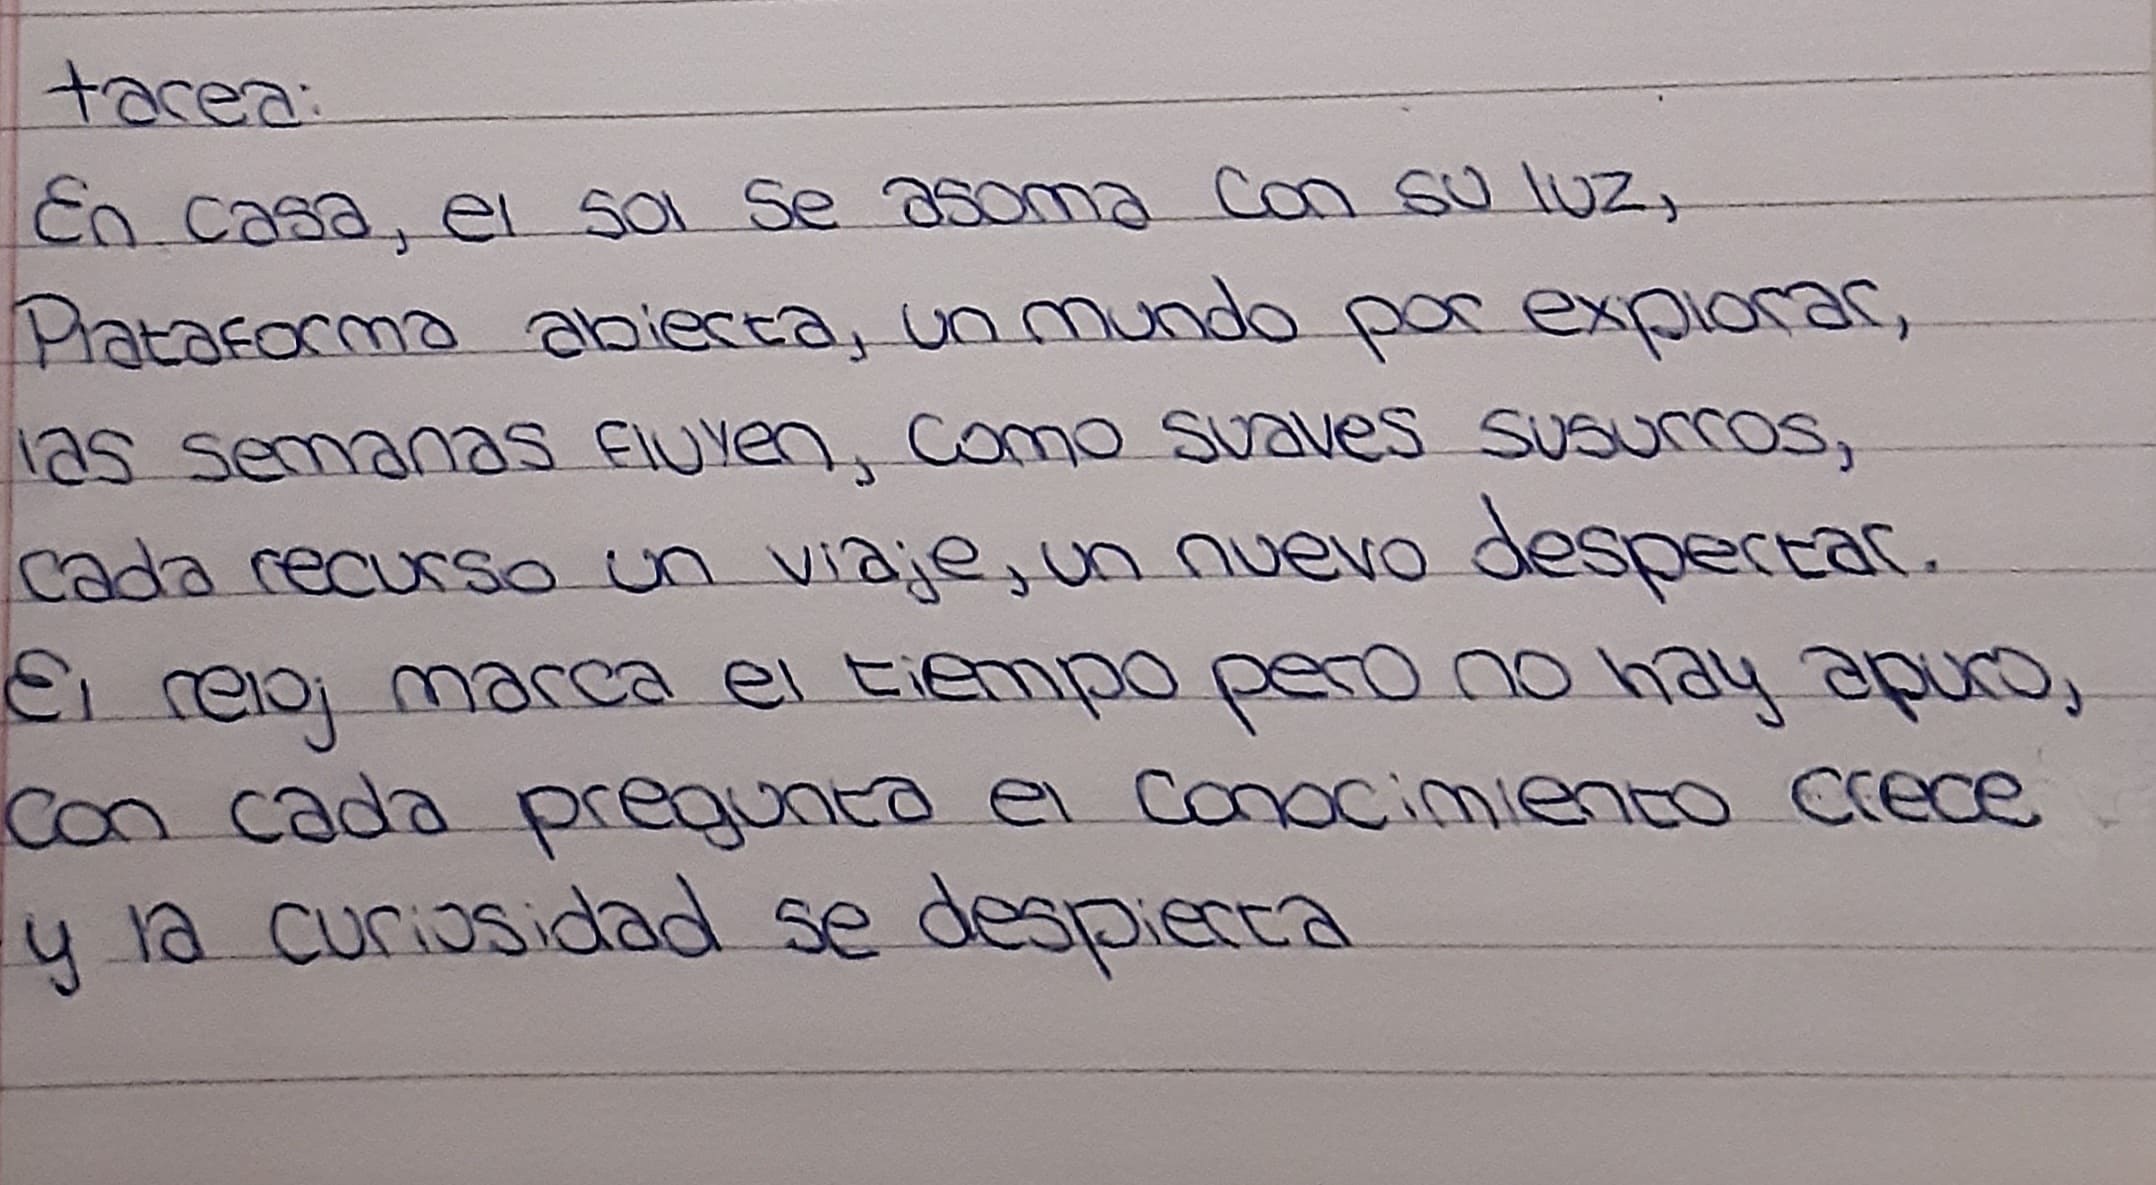 tarea:
En casa, el sol se asoma con su luz,
Plataforma abierta, un mundo por explorar,
las semanas fluyen, como suaves susurros,
cada recurso un viaje, un nuevo despertar.
El reloj marca el tiempo pero no hay apuro,
con cada pregunta el conocimiento crece
y la curiosidad se despierta